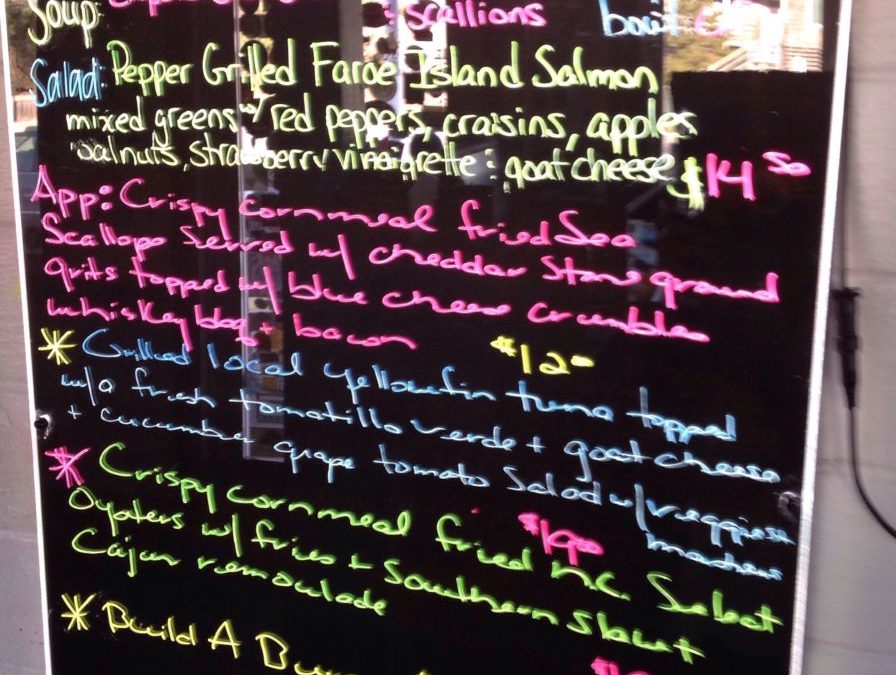 Soup: scallions bowl
Salad: Pepper Grilled Faroe Island Salmon
mixed greens w/ red peppers, craisins, apples
walnuts, strawberry vinaigrette : goat cheese $14 50
App: Crispy cornmeal fried Sea
Scallops Served w/ cheddar Stone ground
grits topped w/ blue cheese crumbles
whiskey bbq + bacon $12 00
* Grilled local yellowfin tuna topped
w/ a fresh tomatillo verde + goat cheese
+ cucumber grape tomato Salad w/ veggies
mashers
$19 00
* Crispy cornmeal fried n.c. Select
Oysters w/ fries + Southern Slaw
Cajun remoulade
* Build A